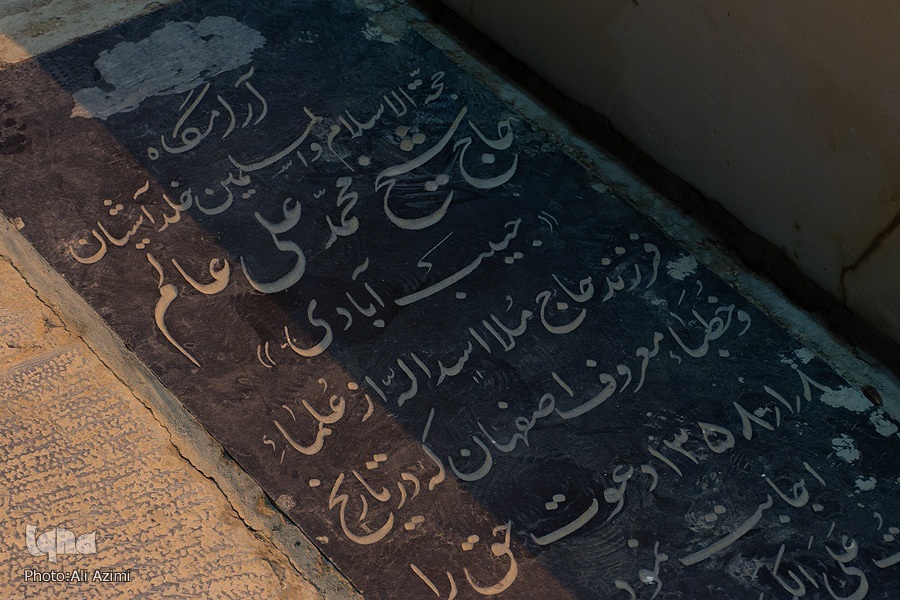 آرامگاه
حجّة الاسلام والمسلمین خلد آشیان
حاج شیخ محمّد علی عالم
«حبیب آبادی»
فرزند حاج مُلا اسداله از عُلماءِ
وخُطباءِ معروف اصفهان که در تاریخ
۱۳۵۸/۱/۸ دعوت حق را
اجابت نمود
عَلَی
iqna
Photo:Ali Azimi